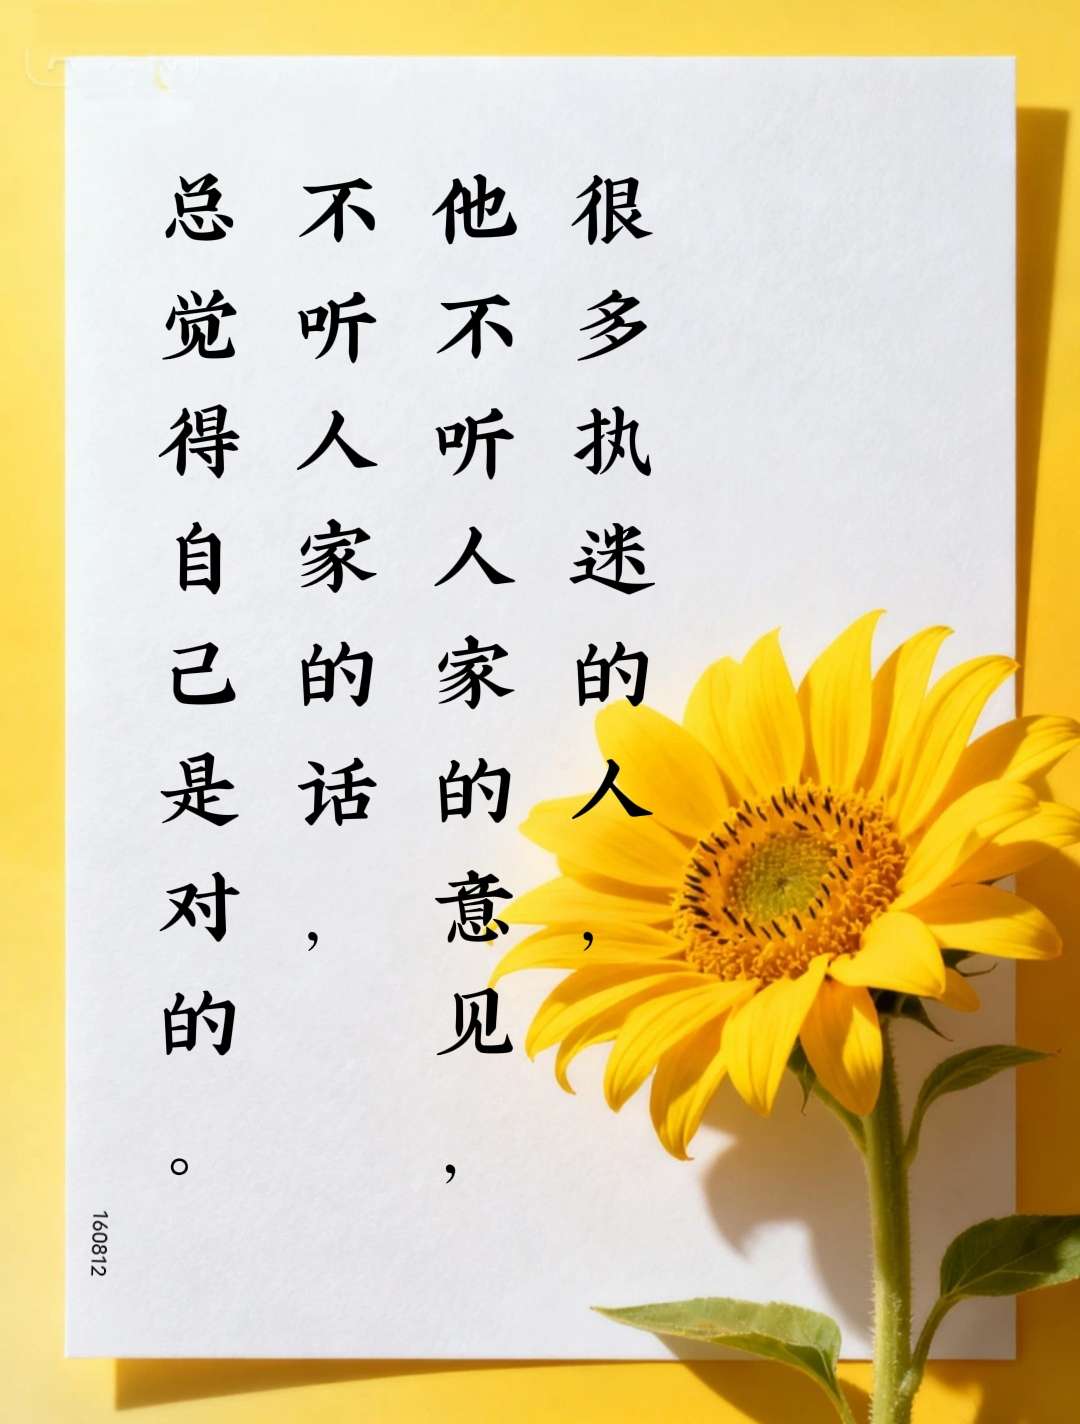 很多执迷的人，
他不听人家的意见，
不听人家的话，
总觉得自己是对的。
160812